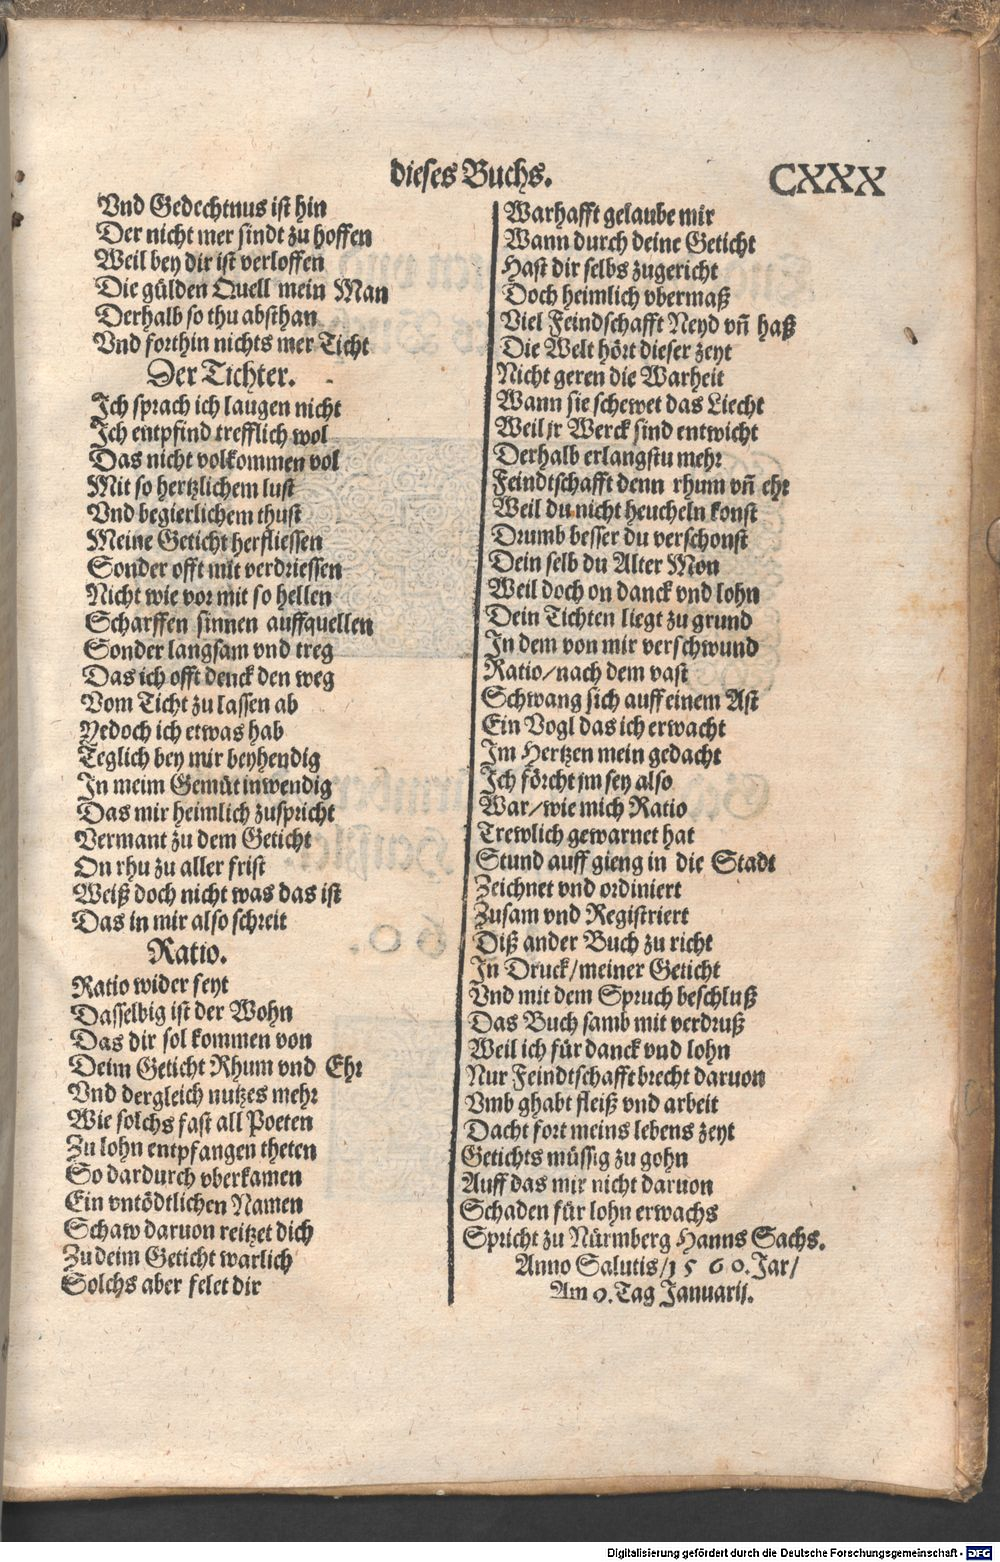 dieses Buchs.
CXXX
Vnd Gedechtnus ist hin
Der nicht mer sindt zu hoffen
Weil bey dir ist verloffen
Die gülden Quell mein Man
Derhalb so thu absthan
Vnd forthin nichts mer Ticht
Der Tichter.
Ich sprach ich laugen nicht
Ich entpfind trefflich wol
Das nicht volkommen vol
Mit so hertzlichem lust
Vnd begierlichem thust
Meine Geticht herfliessen
Sonder offt mit verdriessen
Nicht wie vor mit so hellen
Scharffen sinnen auffquellen
Sonder langsam vnd treg
Das ich offt denck den weg
Vom Ticht zu lassen ab
Yedoch ich etwas hab
Teglich bey mir beyhendig
In meim Gemüt inwendig
Das mir heimlich zuspricht
Vermant zu dem Geticht
On rhu zu aller frist
Weiß doch nicht was das ist
Das in mir also schreit
Ratio.
Ratio wider seyt
Dasselbig ist der Wohn
Das dir sol kommen von
Deim Geticht Rhum vnd Ehr
Vnd dergleich nutzes mehr
Wie solchs fast all Poeten
Zu lohn entpfangen theten
So dardurch vberkamen
Ein vntödtlichen Namen
Schaw daruon reitzet dich
Zu deim Geticht warlich
Solchs aber felet dir
Warhafft gelaube mir
Wann durch deine Geticht
Hast dir selbs zugericht
Doch heimlich vbermaß
Viel Feindschafft Neyd vñ haß
Die Welt hört dieser zeyt
Nicht geren die Warheit
Wann sie schewet das Liecht
Weil jr Werck sind entwicht
Derhalb erlangstu mehr
Feindtschafft denn rhum vñ ehr
Weil du nicht heucheln konst
Drumb besser du verschonst
Dein selb du Alter Mon
Weil doch on danck vnd lohn
Dein Tichten liegt zu grund
In dem von mir verschwund
Ratio/nach dem vast
Schwang sich auff einem Ast
Ein Vogl das ich erwacht
Im Hertzen mein gedacht
Ich förcht jm sey also
War/wie mich Ratio
Trewlich gewarnet hat
Stund auff gieng in die Stadt
Zeichnet vnd ordiniert
Zusam vnd Registriert
Diß ander Buch zu richt
In Druck/meiner Geticht
Vnd mit dem Spruch beschluß
Das Buch samb mit verdruß
Weil ich für danck vnd lohn
Nur Feindtschafft brecht daruon
Vmb ghabt fleiß vnd arbeit
Dacht fort meins lebens zeyt
Getichts müssig zu gohn
Auff das mir nicht daruon
Schaden für lohn erwachs
Spricht zu Nürmberg Hanns Sachs.
Anno Salutis/1560.Jar/
Am 9.Tag Januarij.
Digitalisierung gefördert durch die Deutsche Forschungsgemeinschaft - DFG